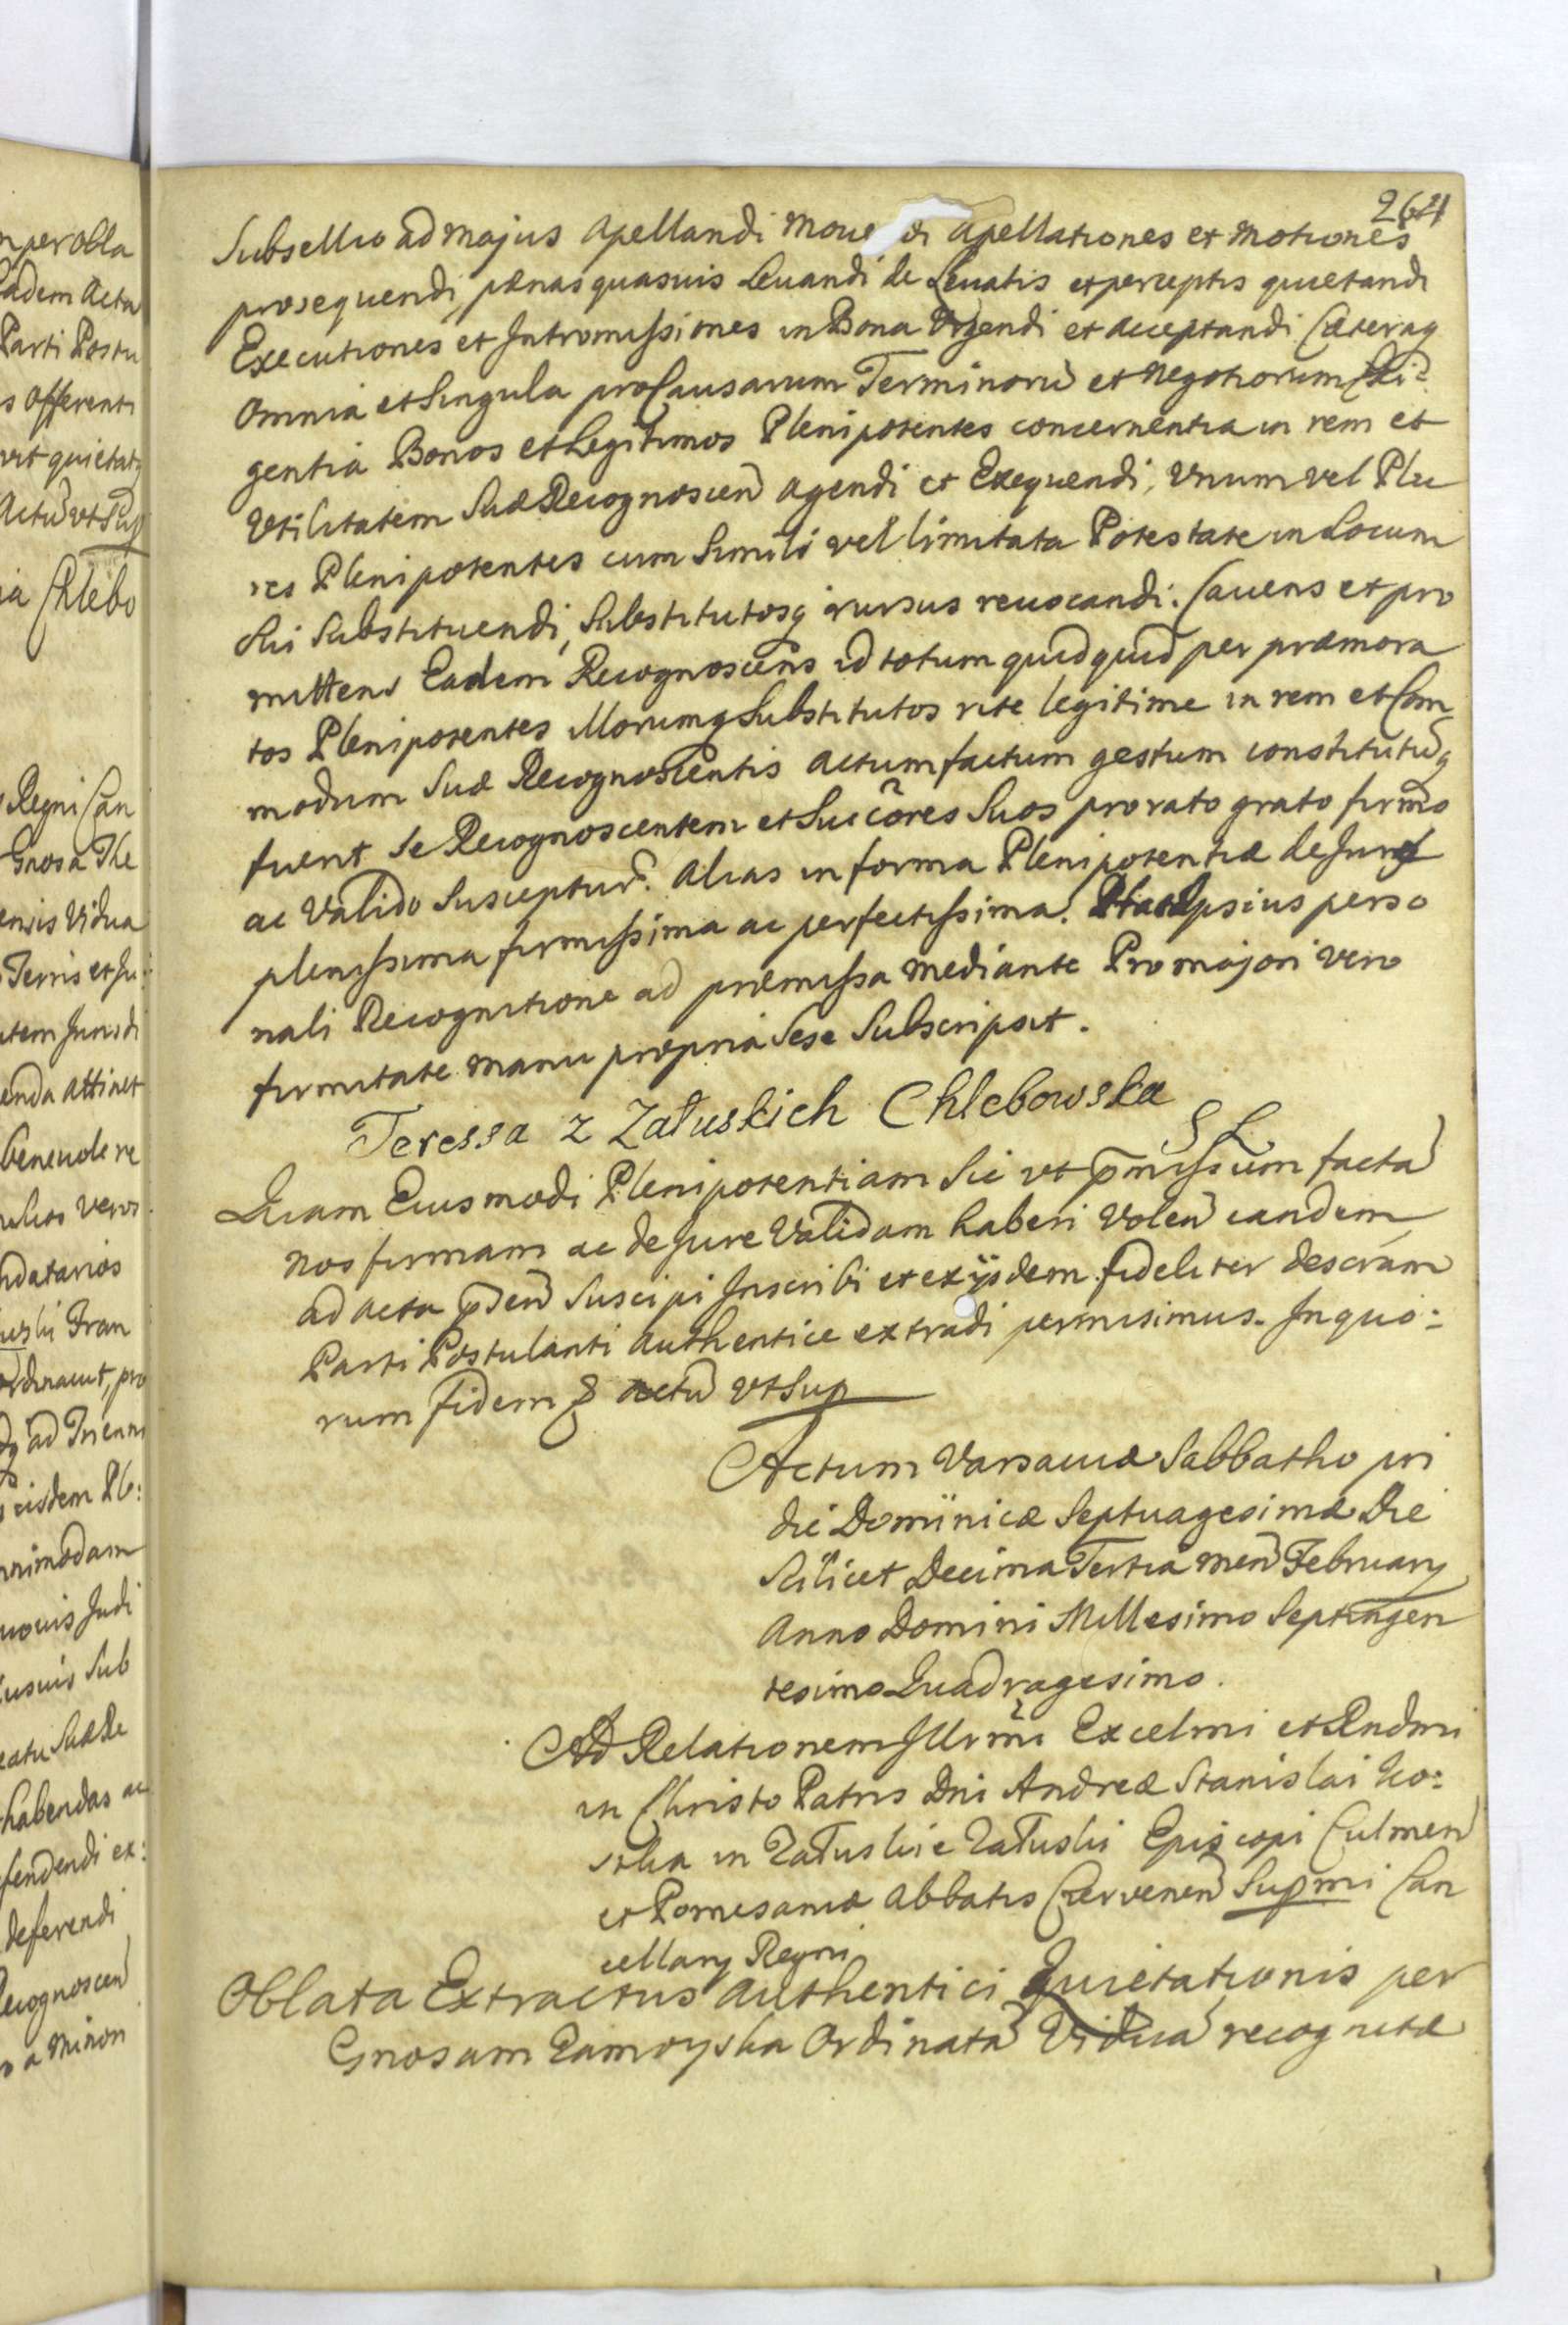 264
Subsellio ad majus apellandi move di apellationes et motiones
prosequendi, pænas quasuis Levandi de Levatis et perceptis quietandi
Executiones et Intromissiones in Bona Urgendi et acceptandi Cæteraq
omnia et Singula pro Causarum Terminorũ et negotiorum Exi=
gentia Bonos et Legitimos Plenipotentes concernentia in rem et
Utilitatem Suæ Recognoscen agendi et Exequendi, Unum vel Plu
res Plenipotentes cum Simili vel limitata Potestate in Locum
Sui Substituendi, Substitutosq rursus revocandi. Cavens et pro
mittens Eadem Recognoscens id totum quidquid per præmora
tos Plenipotentes illorumq Substitutos rite legitime in rem et Com
modum Suæ Recognoscentis actum factum gestum constitutũq
fuerit Se Recognoscentem et Succõres Suos pro rato grato firmo
ac Valido Suscepturˉ. Alias in forma Plenipotentiæ de Jure
plenissima firmissima ac perfectissima. Ipsius perso
nali Recognitione ad præmissa mediante Pro majori vero
firmitate manu propria Sese Subscripsit.
Teressa z Załuskich Chlebowska
S L
Quam Eiusmodi Plenipotentiam Sic ut p̃missum facta
nos firmam ac de Jure Validam haberi Volen eandem
ad acta p̃sen Suscipi Inscribi et ex ijsdem fideliter descriám
Parti Postulanti authentice extradi permisimus. In quo=
rum fidem & actũ ut Sup
Actum Varsaviæ Sabbatho pri
die Dominicæ Septuagesimæ Die
Scilicet Decima Tertia men February
Anno Domini Millesimo Septingen
tesimo Quadragesimo.
Ad Relationem Illrm̃i Excelmi et Rndmi
in Christo Patris Dni Andreæ Stanislai Ko=
stka in Załuskie Załuski Episcopi Culmen
et Pomesaniæ Abbatis Czervenen Supmi Can
cellary Regni
Oblata Extractus authentici Quietationis per
Gnosam Zamoyska Ordinata Vidua recognitæ